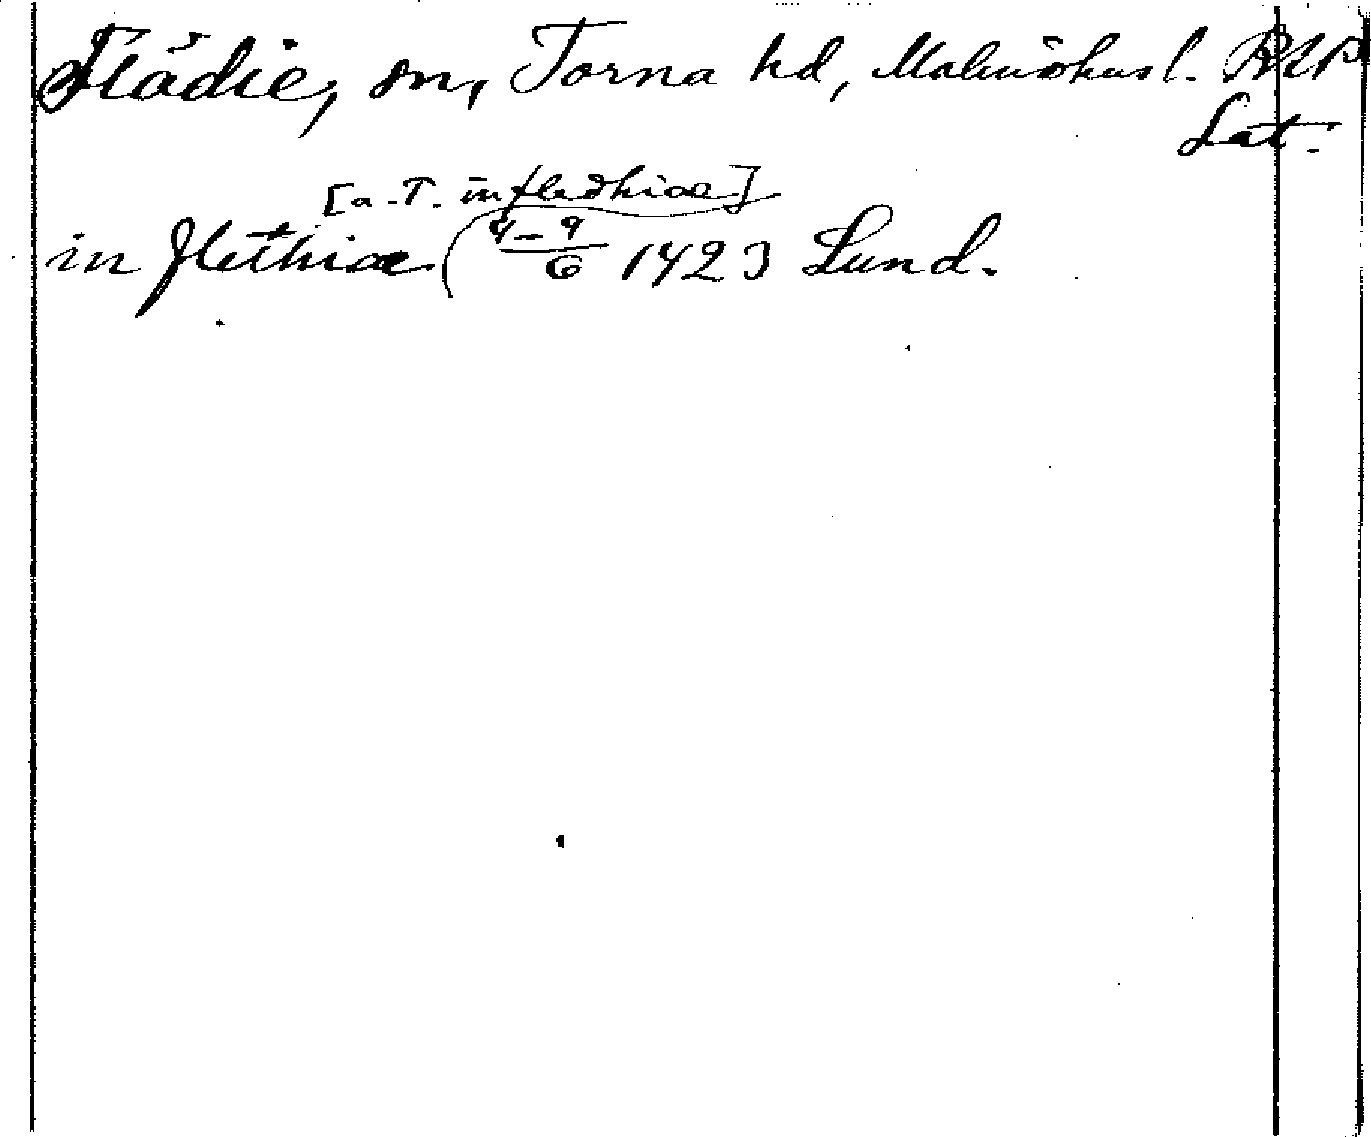 Flädie, sn, Torna hd, Malmöhus l. RAP
Lat.
[a-T. in fledhiae]
in flethiae ( 4-9/6 1423 Lund.